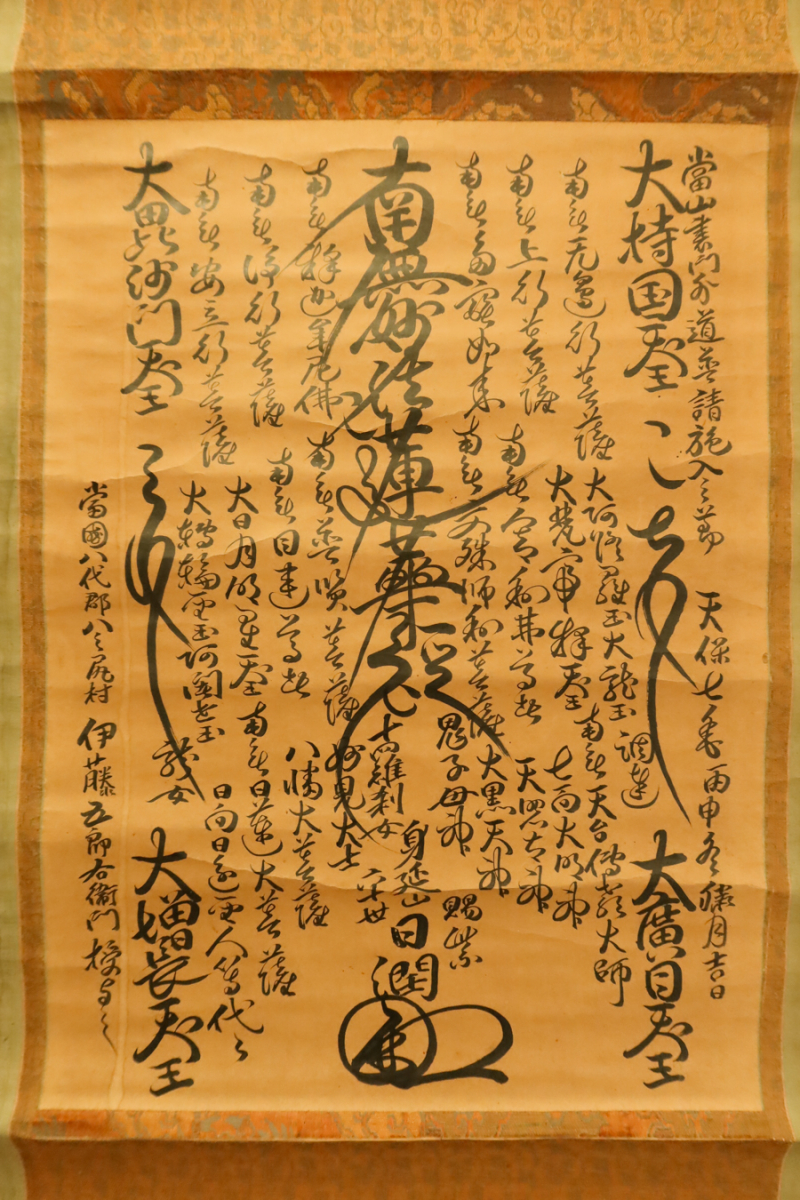 當山裏門外道普請施入之節 天保七年丙申冬臘月吉日
大持国天王
大廣目天王
大阿修羅王 大龍王 調達
南無无邊行菩薩
大梵帝釋天王
南無天台傳教大師
南無上行菩薩
南無舍利弗尊者
七面大明神
天照太神
南無多寳如来
南無文殊師利菩薩
大黒天神
鬼子母神
賜紫
南無妙法蓮華経
十羅刹女
身延山
六十世
日潤
南無釋迦牟尼佛
南無普賢菩薩
妙見大士
南無淨行菩薩
南無目連尊者
八幡大菩薩
南無安立行菩薩
大日月明星天王
南無日蓮大菩薩
大轉輪聖王 阿闍世王
日向日進聖人等代々
龍女
大毘沙門天王
大増長天王
當國八代郡八之尻村 伊藤五郎右衛門 授与之